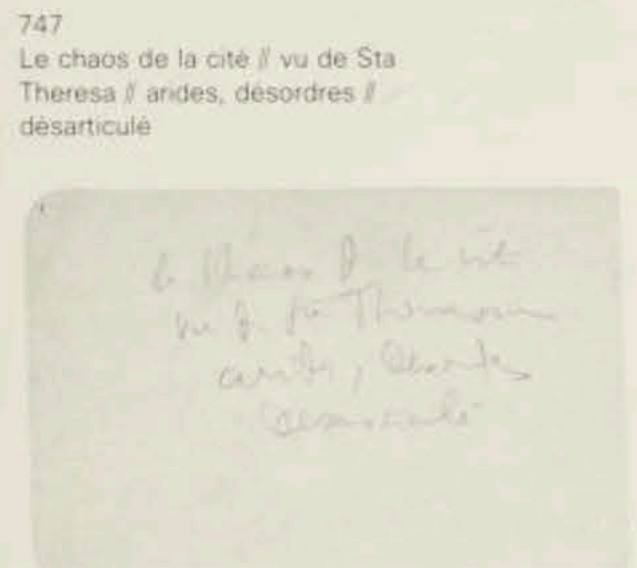 747
Le chaos de la cité // vu de Sta
Theresa // arides, désordres //
désarticulé
le chaos de la cité
vu de Sta Theresa
arides, désordres
désarticulé